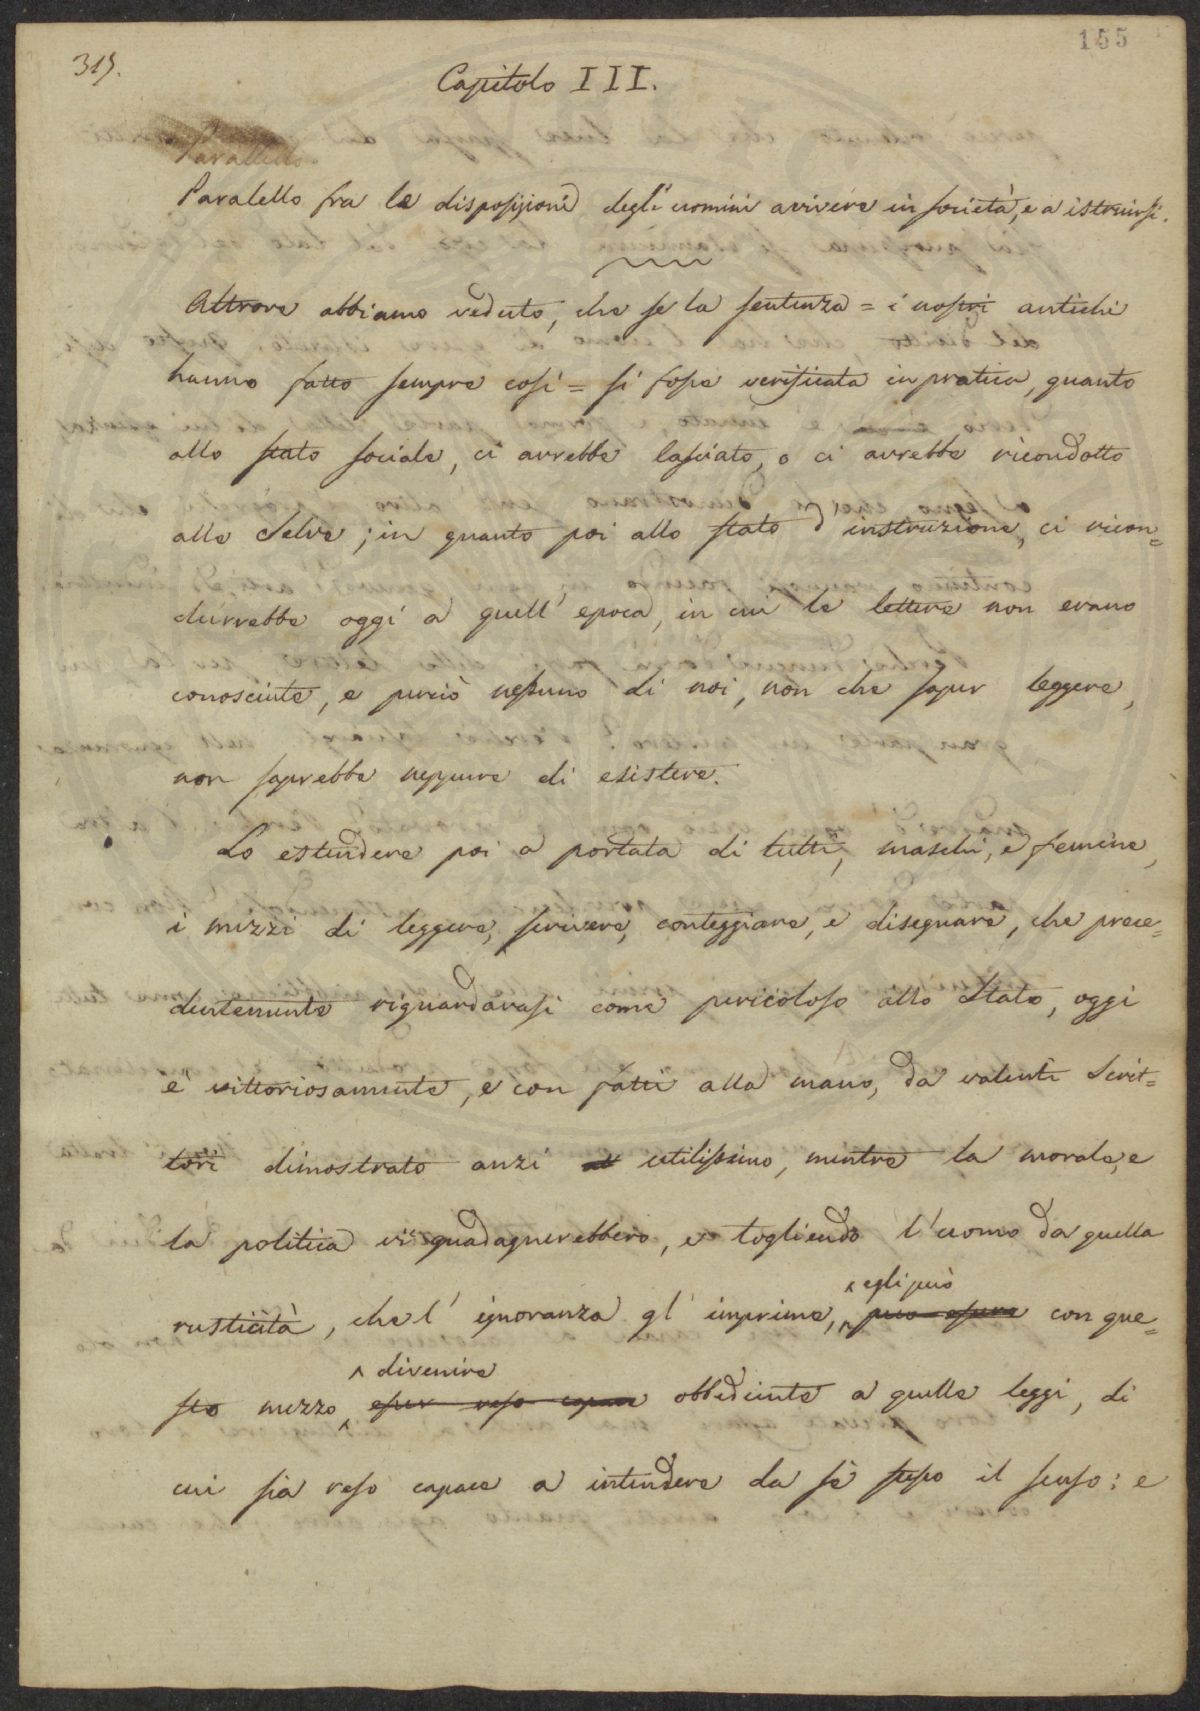 155
315.
Capitolo III.
Paralello
Paralello fra le disposizioni degli uomini a vivere in società, e a istruirsi.
Altrove abbiamo veduto, che se la sentenza = i nostri antichi
hanno fatto sempre così = si fosse verificata in pratica, quanto
allo stato sociale, ci avrebbe lasciato, o ci avrebbe ricondotto
alle Selve; in quanto poi allo stato d'instruzione, ci ricon=
durrebbe oggi a quell'epoca, in cui le lettere non erano
conosciute, e perciò nessuno di noi, non che saper leggere,
non saprebbe neppure di esistere.
Lo estendere poi a portata di tutti, maschi, e femine,
i mezzi di leggere, scrivere, conteggiare, e disegnare, che prece=
dentemente riguardavasi come pericoloso allo Stato, oggi
è vittoriosamente, e con fatti alla mano, da valenti Scrit=
tori dimostrato anzi utilissimo, mentre la morale, e
la politica vi guadagnerebbero, e togliendo l'uomo da quella
rusticità, che l'ignoranza gl'imprime, ^ egli può puo essere con que=
sto mezzo ^ divenire esser reso capace obbediente a quelle leggi, di
cui sia reso capace a intendere da sè stesso il senso: e